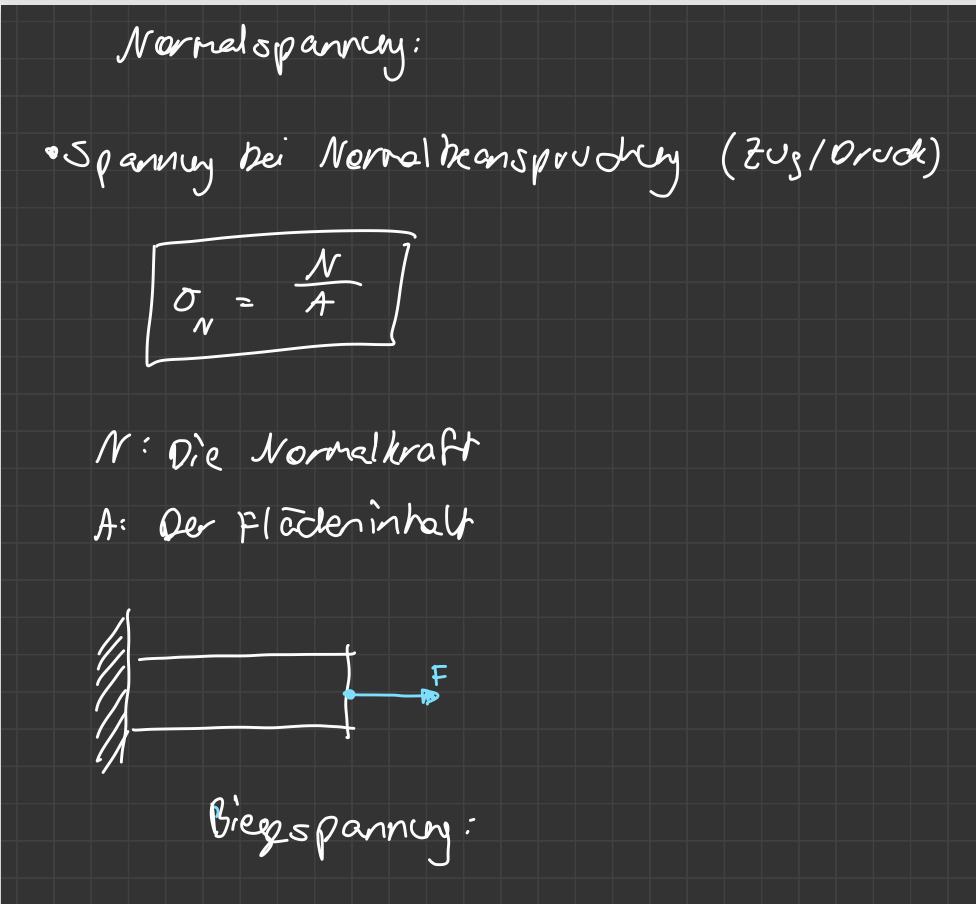 Normalspannung:
• Spannung bei Normalbeanspruchung (Zug/Druck)
σ_N = N/A
N: Die Normalkraft
A: Der Flächeninhalt
F
Biegespannung: